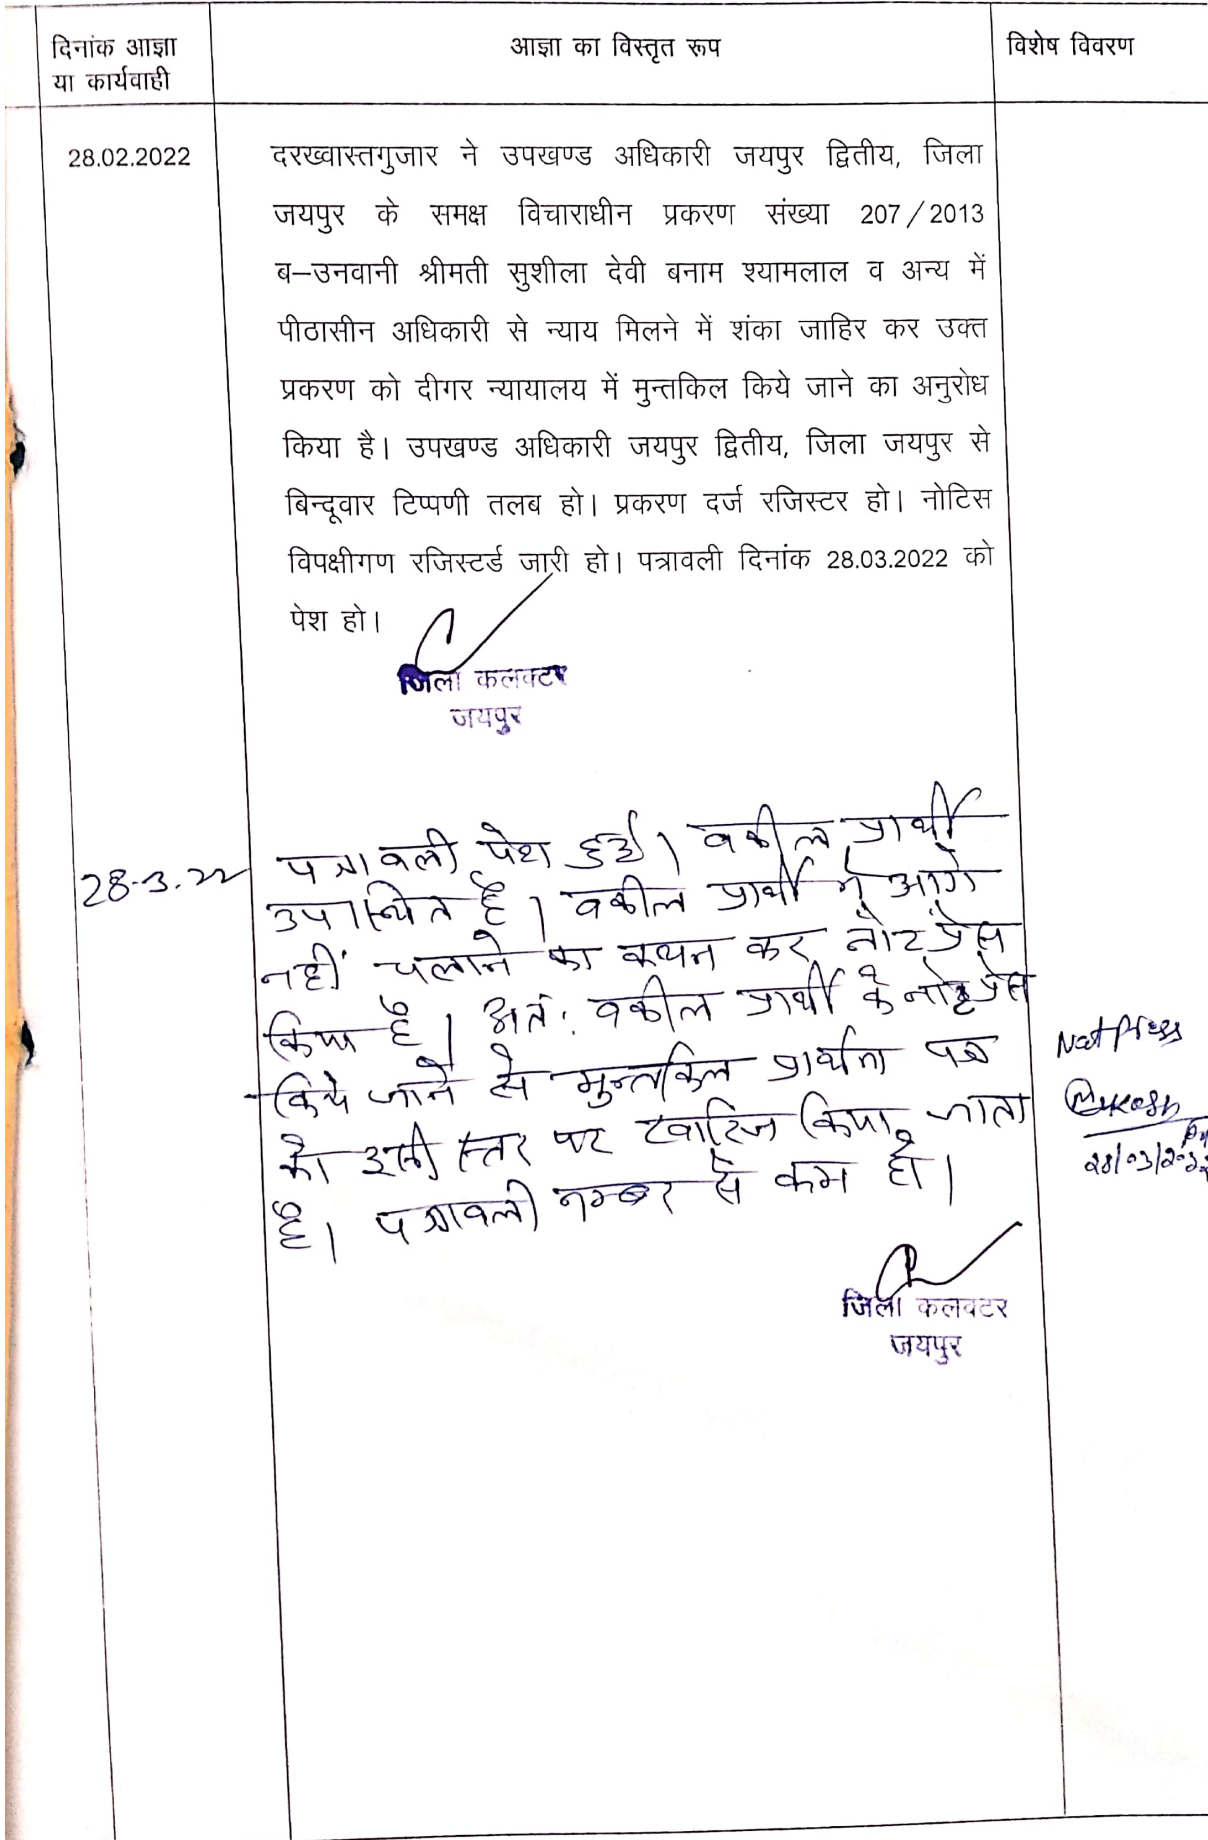 दिनांक आज्ञा
या कार्यवाही
आज्ञा का विस्तृत रूप
विशेष विवरण
28.02.2022
दरख्वास्तगुजार ने उपखण्ड अधिकारी जयपुर द्वितीय, जिला
जयपुर के समक्ष विचाराधीन प्रकरण संख्या 207/2013
ब–उनवानी श्रीमती सुशीला देवी बनाम श्यामलाल व अन्य में
पीठासीन अधिकारी से न्याय मिलने में शंका जाहिर कर उक्त
प्रकरण को दीगर न्यायालय में मुन्तकिल किये जाने का अनुरोध
किया है। उपखण्ड अधिकारी जयपुर द्वितीय, जिला जयपुर से
बिन्दूवार टिप्पणी तलब हो। प्रकरण दर्ज रजिस्टर हो। नोटिस
विपक्षीगण रजिस्टर्ड जारी हो। पत्रावली दिनांक 28.03.2022 को
पेश हो।
जिला कलक्टर
जयपुर
28-3-22
पत्रावली पेश हुई। वकील प्रार्थी
उपस्थित है। वकील प्रार्थी ने आगे
नहीं चलाने का कथन कर नोट प्रेस
किया है। अतः वकील प्रार्थी के नोट प्रेस
किये जाने से मुन्तकिल प्रार्थना पत्र
को इसी स्तर पर खारिज किया जाता
है। पत्रावली नम्बर से कम हो।
Not Press
Mukesh
28/03/2022
जिला कलक्टर
जयपुर